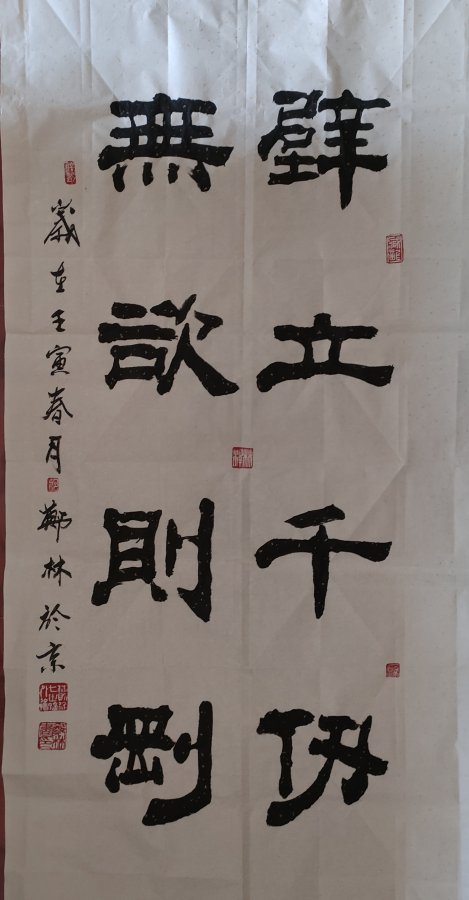 壁立千仞
無欲則剛
歲在壬寅春月鄭林於京